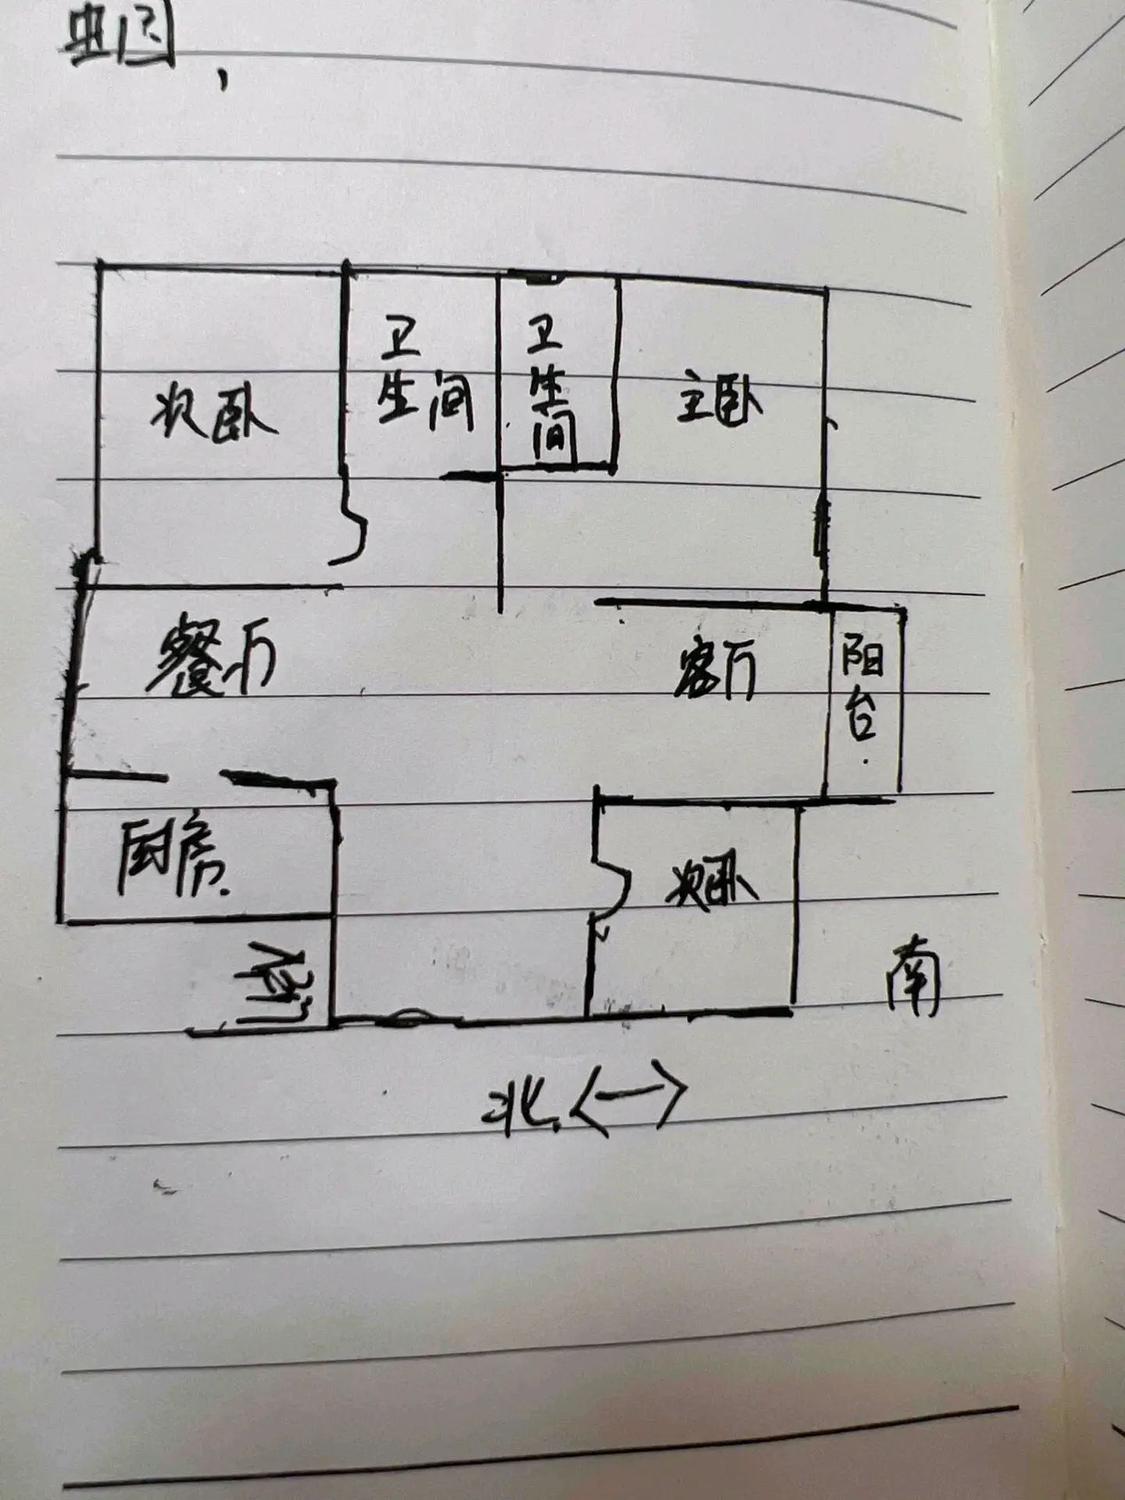 次卧
卫
生间
卫
生
间
主卧
餐厅
客厅
阳
台.
厨房.
次卧
南
北.